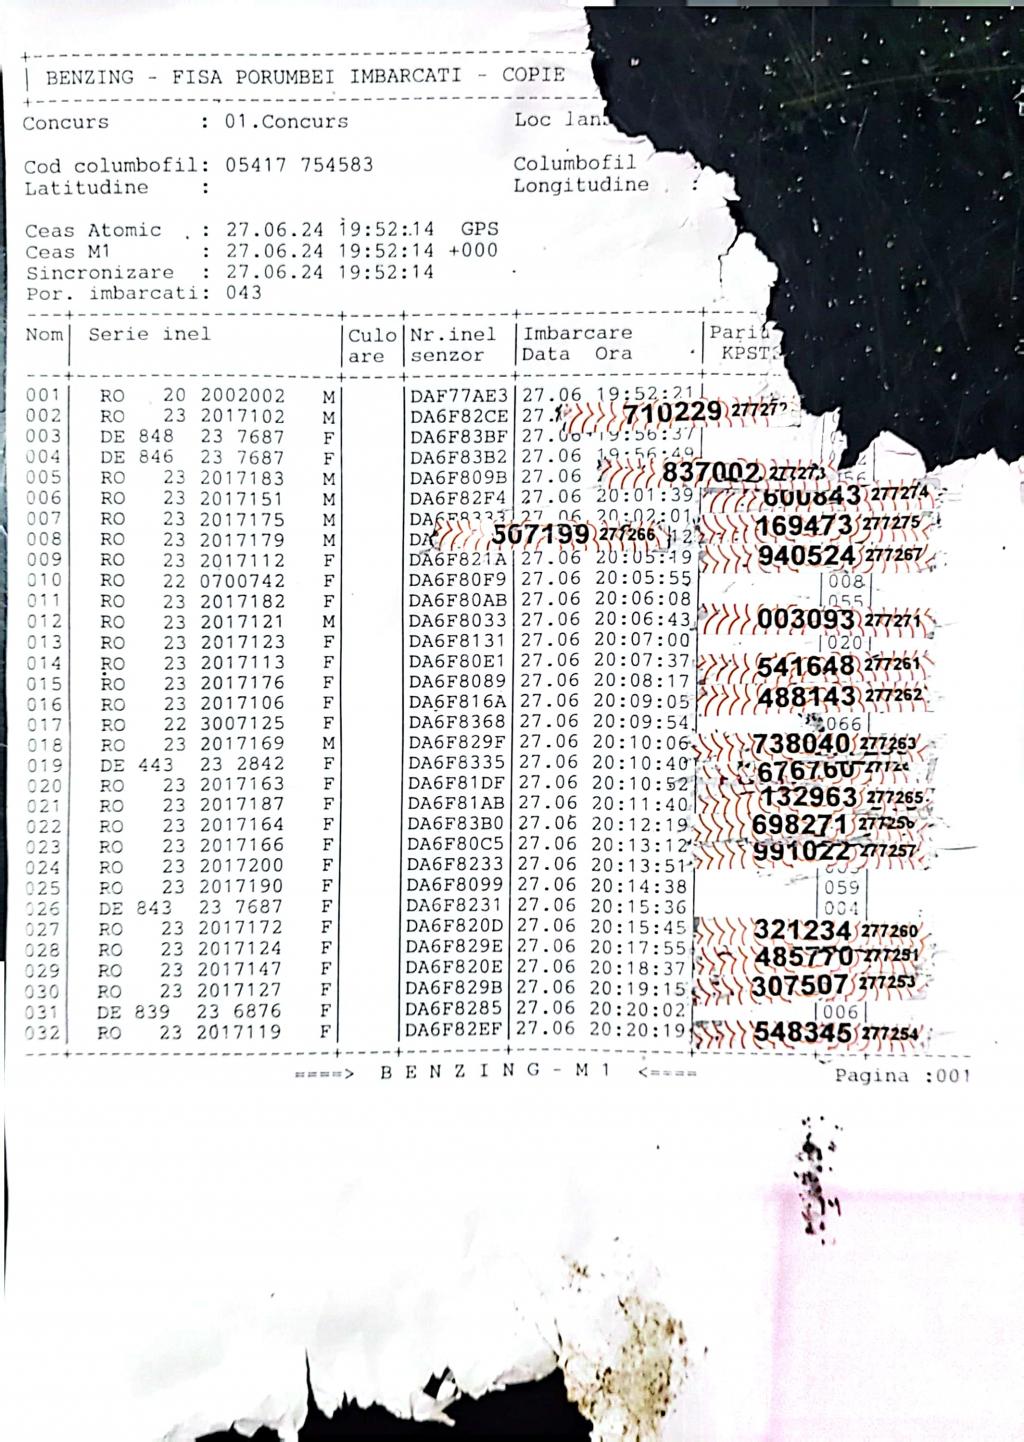 BENZING - FISA PORUMBEI IMBARCATI - COPIE
Concurs : 01.Concurs Loc
Cod columbofil: 05417 754583 Columbofil :
Latitudine : Longitudine :
Ceas Atomic : 27.06.24 19:52:14 GPS
Ceas M1 : 27.06.24 19:52:14 +000
Sincronizare : 27.06.24 19:52:14
Por. imbarcati: 043
Nom Serie inel Culo Nr.inel Imbarcare
are senzor Data Ora
001 RO 20 2002002 M DAF77AE3 27.06 19:52:21
002 RO 23 2017102 M DA6F82CE 710229
003 DE 848 23 7687 F DA6F83BF 27.06 19:56:37
004 DE 846 23 7687 F DA6F83B2 27.06 19:56:49
005 RO 23 2017183 M DA6F809B 27.06 837002 277273
006 RO 23 2017151 M DA6F82F4 27.06 20:01:39 600843 277274
007 RO 23 2017175 M DA6F8333 27.06 20:02:01 169473 277275
008 RO 23 2017179 M 507199 277266
009 RO 23 2017112 F DA6F821A 27.06 20:05:49 940524 277267
010 RO 22 0700742 F DA6F80F9 27.06 20:05:55 008
011 RO 23 2017182 F DA6F80AB 27.06 20:06:08 055
012 RO 23 2017121 M DA6F8033 27.06 20:06:43 003093 277271
013 RO 23 2017123 F DA6F8131 27.06 20:07:00 020
014 RO 23 2017113 F DA6F80E1 27.06 20:07:37 541648 277261
015 RO 23 2017176 F DA6F8089 27.06 20:08:17
016 RO 23 2017106 F DA6F816A 27.06 20:09:05 488143 277262
017 RO 22 3007125 F DA6F8368 27.06 20:09:54 066
018 RO 23 2017169 M DA6F829F 27.06 20:10:06 738040 277263
019 DE 443 23 2842 F DA6F8335 27.06 20:10:40 676760
020 RO 23 2017163 F DA6F81DF 27.06 20:10:52
021 RO 23 2017187 F DA6F81AB 27.06 20:11:40 132963 277265
022 RO 23 2017164 F DA6F83B0 27.06 20:12:19 698271 277256
023 RO 23 2017166 F DA6F80C5 27.06 20:13:12 991022 277257
024 RO 23 2017200 F DA6F8233 27.06 20:13:51
025 RO 23 2017190 F DA6F8099 27.06 20:14:38 059
026 DE 843 23 7687 F DA6F8231 27.06 20:15:36 004
027 RO 23 2017172 F DA6F820D 27.06 20:15:45 321234 277260
028 RO 23 2017124 F DA6F829E 27.06 20:17:55 485770 277251
029 RO 23 2017147 F DA6F820E 27.06 20:18:37
030 RO 23 2017127 F DA6F829B 27.06 20:19:15 307507 277253
031 DE 839 23 6876 F DA6F8285 27.06 20:20:02 006
032 RO 23 2017119 F DA6F82EF 27.06 20:20:19 548345 277254
====> B E N Z I N G - M 1 <==== Pagina :001